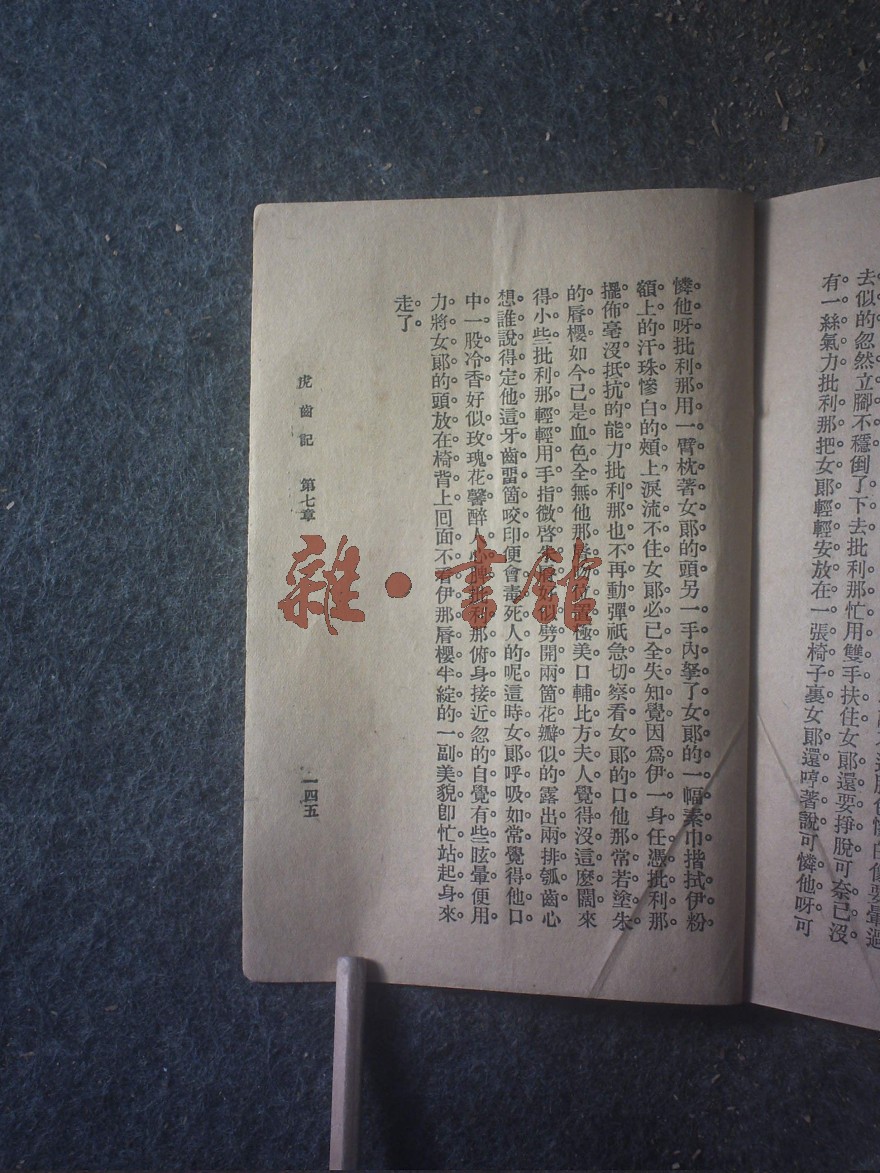 去似的忽然立腳不穩倒了下去批利那忙用雙手扶住女郎還要掙脫可奈已沒
有一絲氣力批利那把女郎輕輕安放在一張椅子裏女郎還哼著說可憐他呀可
憐他呀批利那用一臂枕著女郎的頭另一手內拏了女郎的一幅素巾揩拭伊粉
額上的汗珠慘白的頰上淚流不住女郎必已全失知覺因爲伊一身任憑批利那
擺佈毫沒抵抗的能力批利那也不再動彈祇急切察看女郎的口他那常若塗朱
的脣櫻如今已是血色全無他那位置極美口輔比方夫人覺得沒這麽闊來
得小些批利那輕輕用手指微啓好似劈開兩箇花瓣似的露出兩排瓠齒心
想誰說得定他這牙齒畱箇咬印便會毒死人的呢這時女郎呼吸如常覺得他口
中一股冷香好似玫瑰花馨醉人心脾批利那俯身接近忽的自覺有些眩暈便用
力將女郎的頭放在椅背上囘面不看伊那脣櫻半綻的一副美貌卽忙站起身來
走了。
虎齒記 第七章
一四五
雜·書館